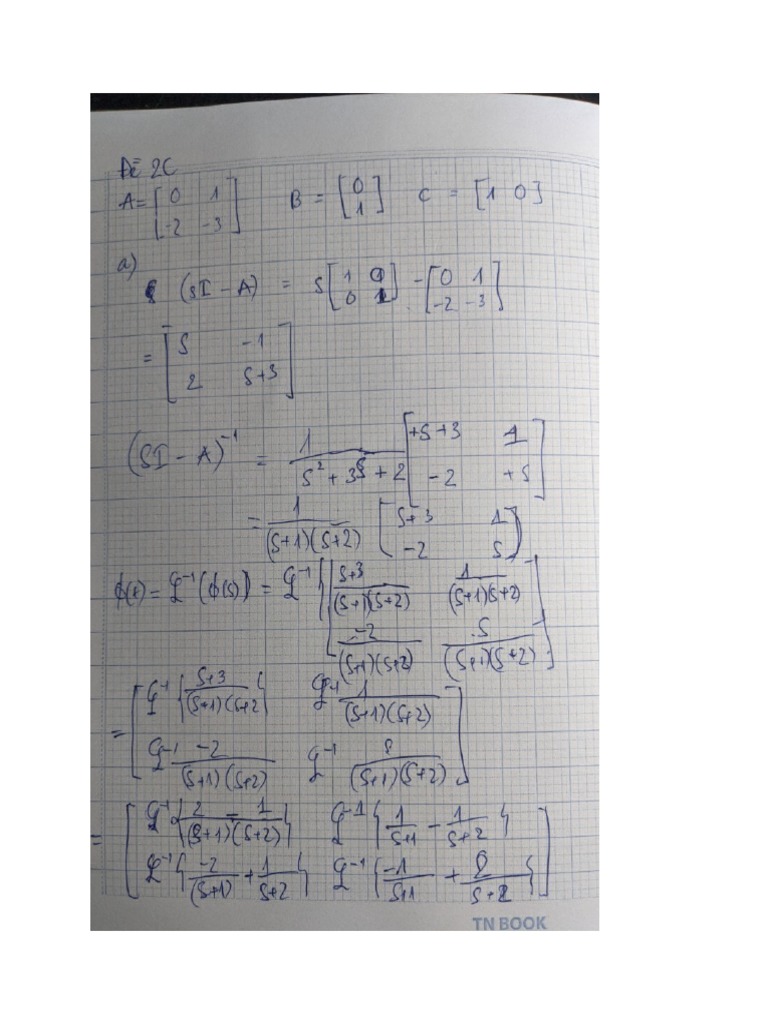 Đề 2C
A = [0 1; -2 -3] B = [0; 1] C = [1 0]
a)
(sI - A) = s[1 0; 0 1] - [0 1; -2 -3]
= [s -1; 2 s+3]
(sI - A)^-1 = 1/(s^2 + 3s + 2) [+s+3 1; -2 +s]
= 1/((s+1)(s+2)) [s+3 1; -2 s]
ϕ(t) = L^-1(ϕ(s)) = L^-1{[(s+3)/((s+1)(s+2)) 1/((s+1)(s+2)); -2/((s+1)(s+2)) s/((s+1)(s+2))]
= [L^-1{(s+3)/((s+1)(s+2)} L^-1 1/((s+1)(s+2)); L^-1 -2/((s+1)(s+2)) L^-1 s/((s+1)(s+2))]
= [L^-1{2/(s+1) - 1/(s+2)} L^-1{1/(s+1) - 1/(s+2)}; L^-1{-2/(s+1) + 1/(s+2)} L^-1{-1/(s+1) + 2/(s+2)}]
TN BOOK